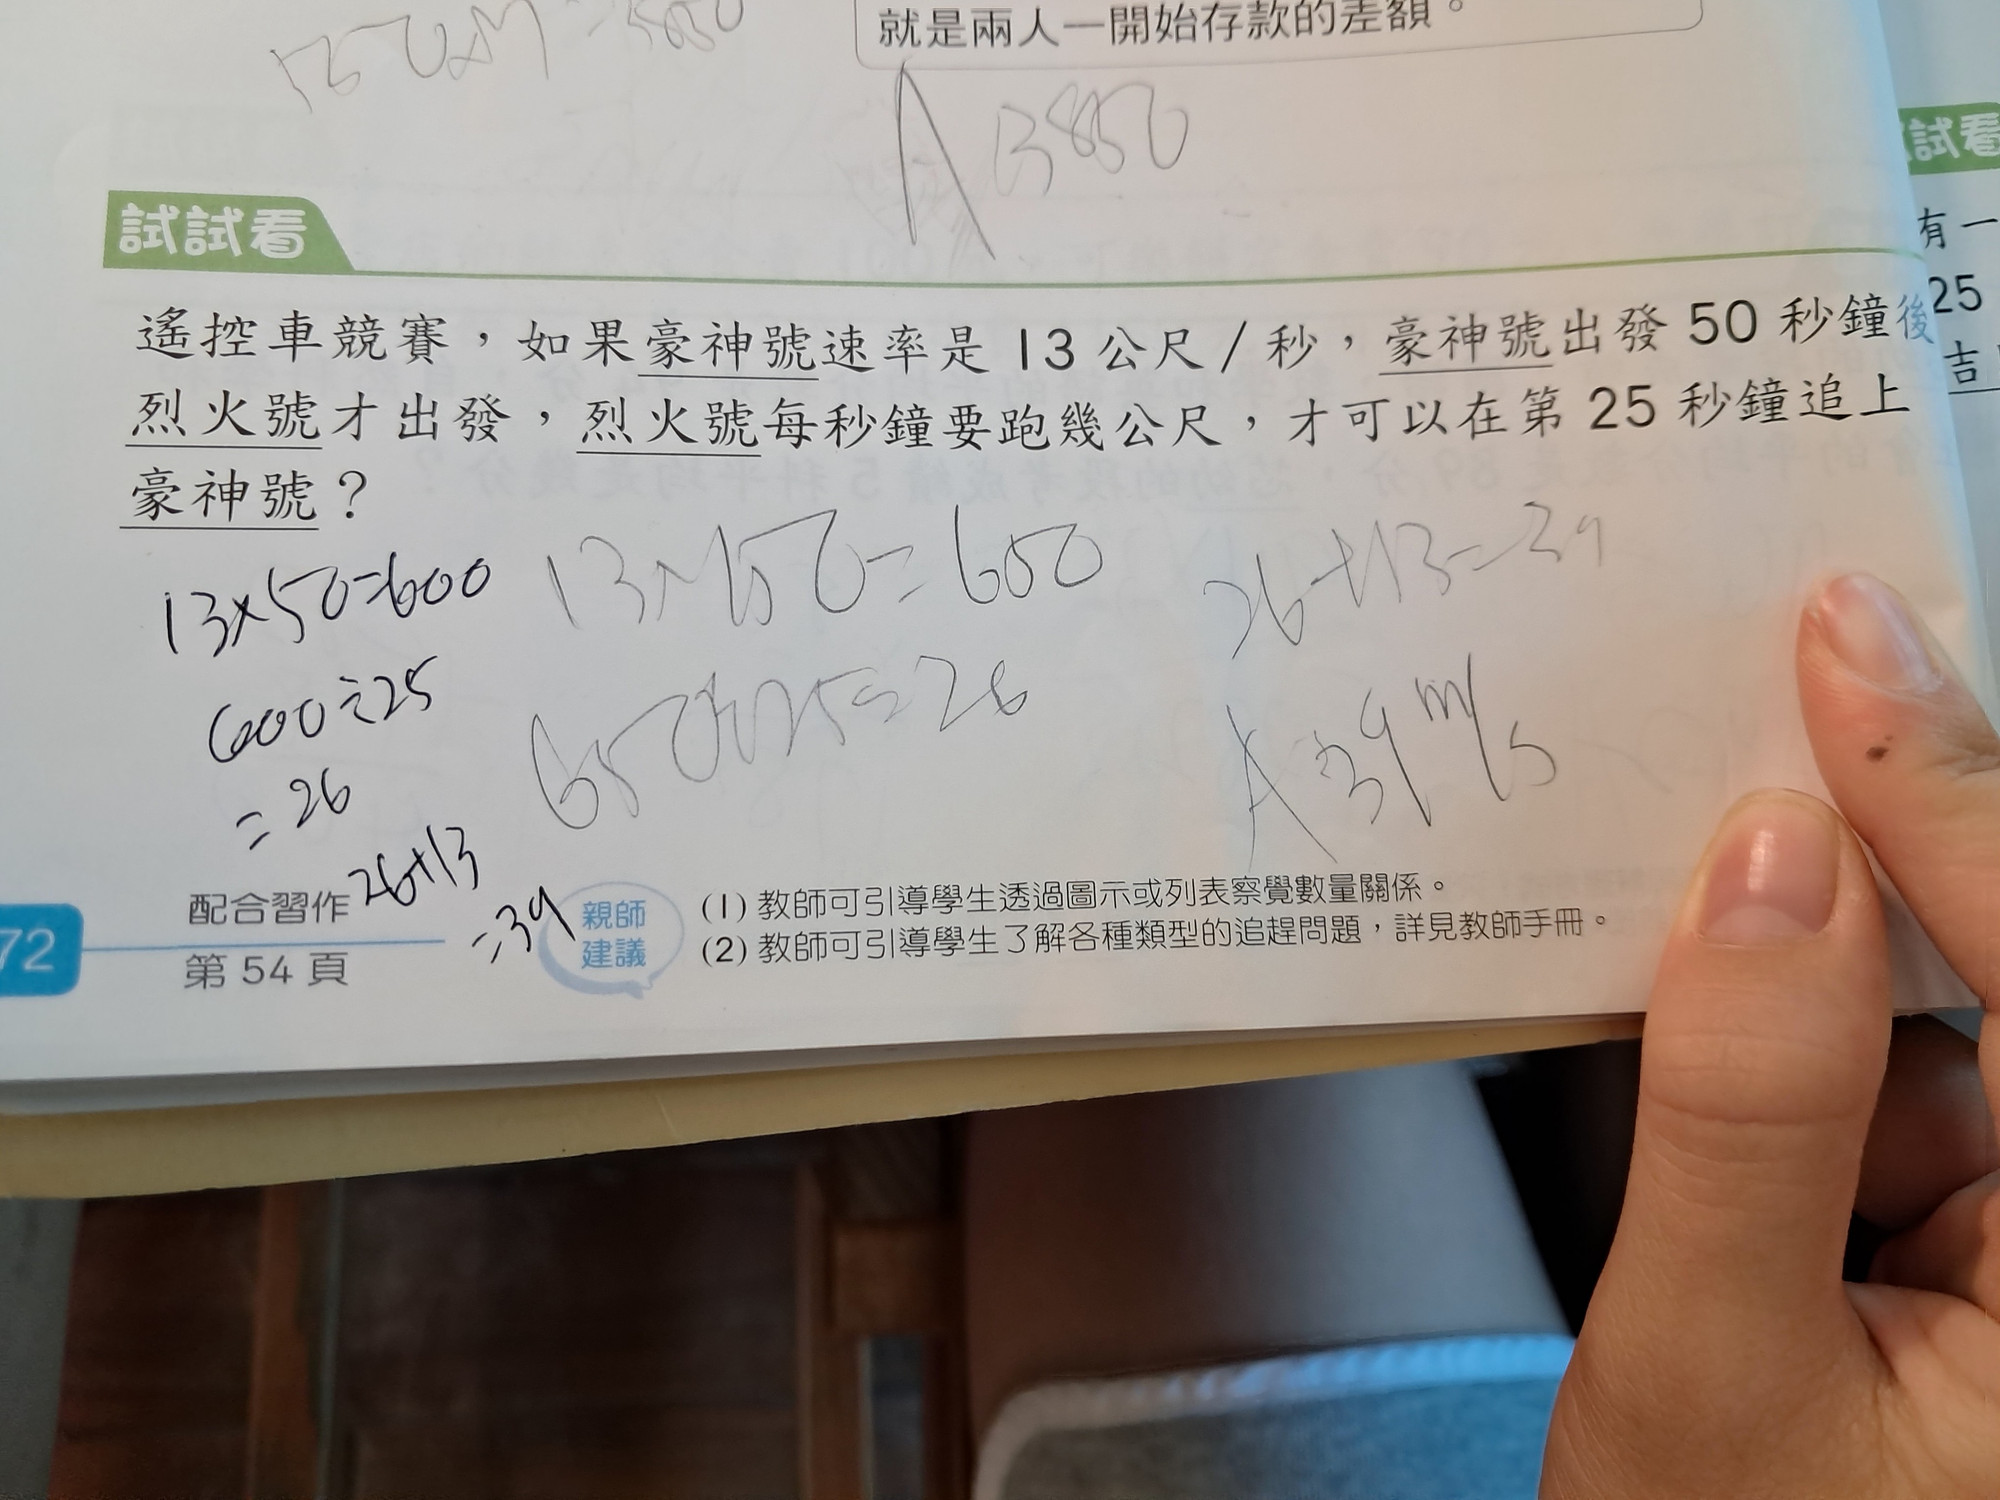 就是兩人一開始存款的差額。
試試看
遙控車競賽，如果豪神號速率是 13 公尺／秒，豪神號出發 50 秒鐘後
烈火號才出發，烈火號每秒鐘要跑幾公尺，才可以在第 25 秒鐘追上
豪神號？
13×50=600
600÷25
=26
26+13
=39
13×50=650
650÷25=26
26+13=39
A:39 m/s
72
配合習作
第 54 頁
親師
建議
(1) 教師可引導學生透過圖示或列表察覺數量關係。
(2) 教師可引導學生了解各種類型的追趕問題，詳見教師手冊。
試看
有一
25
吉